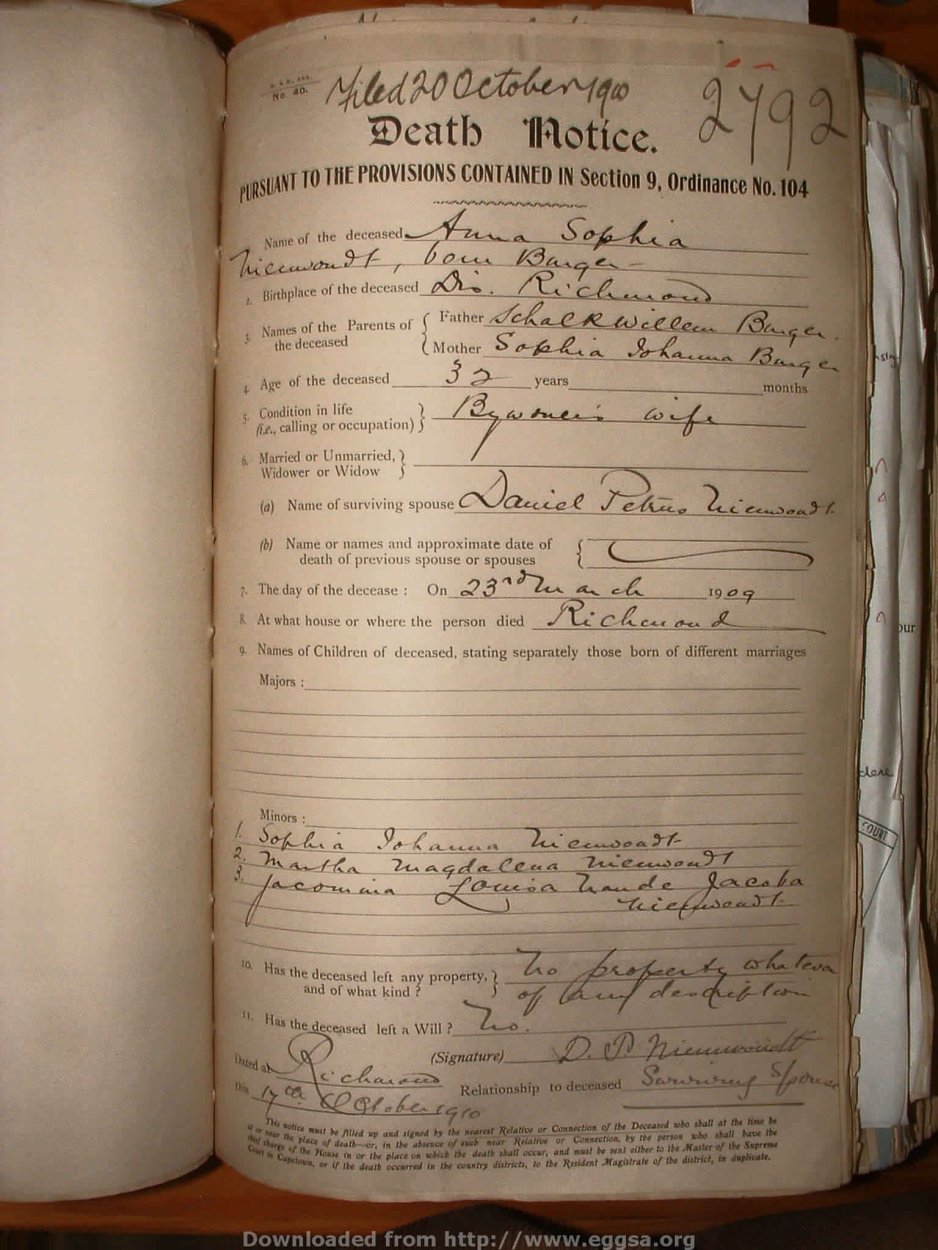 No. 40.
Filed 20 October 1910
2792
Death Notice.
PURSUANT TO THE PROVISIONS CONTAINED IN Section 9, Ordinance No. 104
Name of the deceased Anna Sophia
Nieuwoudt, born Burger
2. Birthplace of the deceased Dis. Richmond
3. Names of the Parents of the deceased { Father Schalk Willem Burger
Mother Sophia Johanna Burger
4. Age of the deceased 32 years months
5. Condition in life (i.e., calling or occupation) } Bywoner's wife
6. Married or Unmarried, Widower or Widow }
(a) Name of surviving spouse Daniel Petrus Nieuwoudt
(b) Name or names and approximate date of death of previous spouse or spouses {
7. The day of the decease : On 23rd March 1909
8. At what house or where the person died Richmond
9. Names of Children of deceased, stating separately those born of different marriages
Majors :
Minors :
1. Sophia Johanna Nieuwoudt
2. Martha Magdalena Nieuwoudt
3. Jacomina Louisa Jacoba
Nieuwoudt
10. Has the deceased left any property, and of what kind ? } No property whatever
of any description
11. Has the deceased left a Will ? No.
(Signature) D. P. Nieuwoudt
Dated at Richmond Relationship to deceased Surviving Spouse
this 17th October 1910
This notice must be filled up and signed by the nearest Relative or Connection of the Deceased who shall at the time be
at or near the place of death—or, in the absence of such near Relative or Connection, by the person who shall have the
chief charge of the House in or the place on which the death shall occur, and must be sent either to the Master of the Supreme
Court in Capetown, or if the death occurred in the country districts, to the Resident Magistrate of the district, in duplicate.
COURT
Downloaded from http://www.eggsa.org